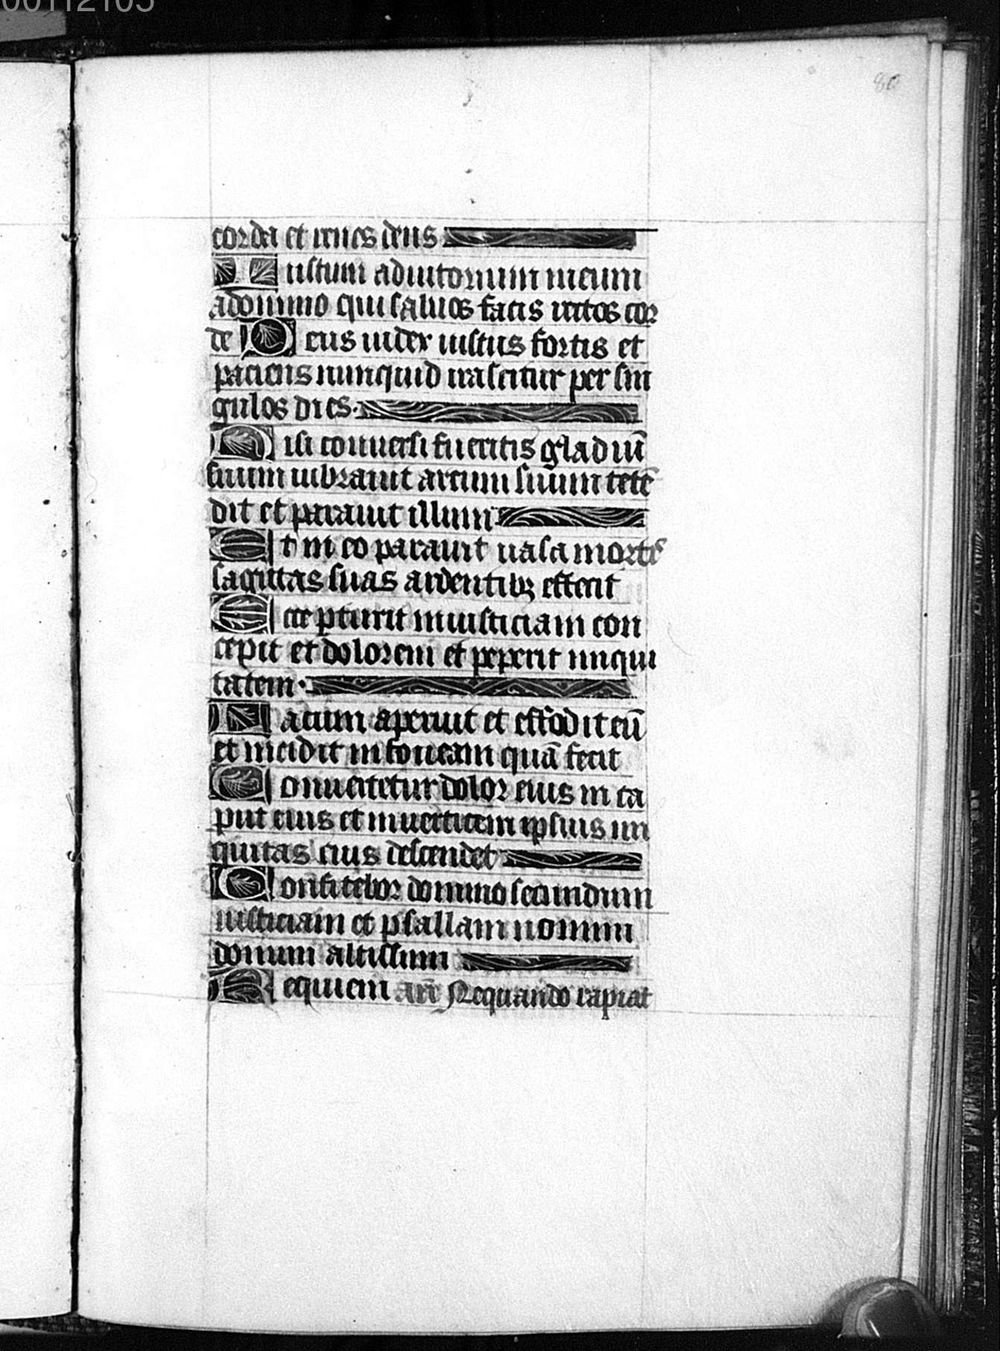 00112105
80
corda et renes deus
Iustum adiutorium meum
adomino qui saluos facis rectos cor
de Deus iudex iustus fortis et
paciens nunquid irascitur per sin
gulos dies.
Nisi conuersi fueritis gladiū
suum uibrauit arcum suum tetē
dit et parauit illum
Et in eo parauit uasa mortis
sagittas suas ardentibꝫ effecit
Ecce pturit iniusticiam con
cepit et dolorem et peperit iniqui
tatem.
Lacum aperuit et effodit eū
et incidit in foueam quā fecit
Conuertetur dolor eius in ca
put eius et inuerticem ipsius ini
quitas eius descendet
Confitebor domino secundum
iusticiam et psallam nomini
domini altissimi
Requiem Nequando rapiat